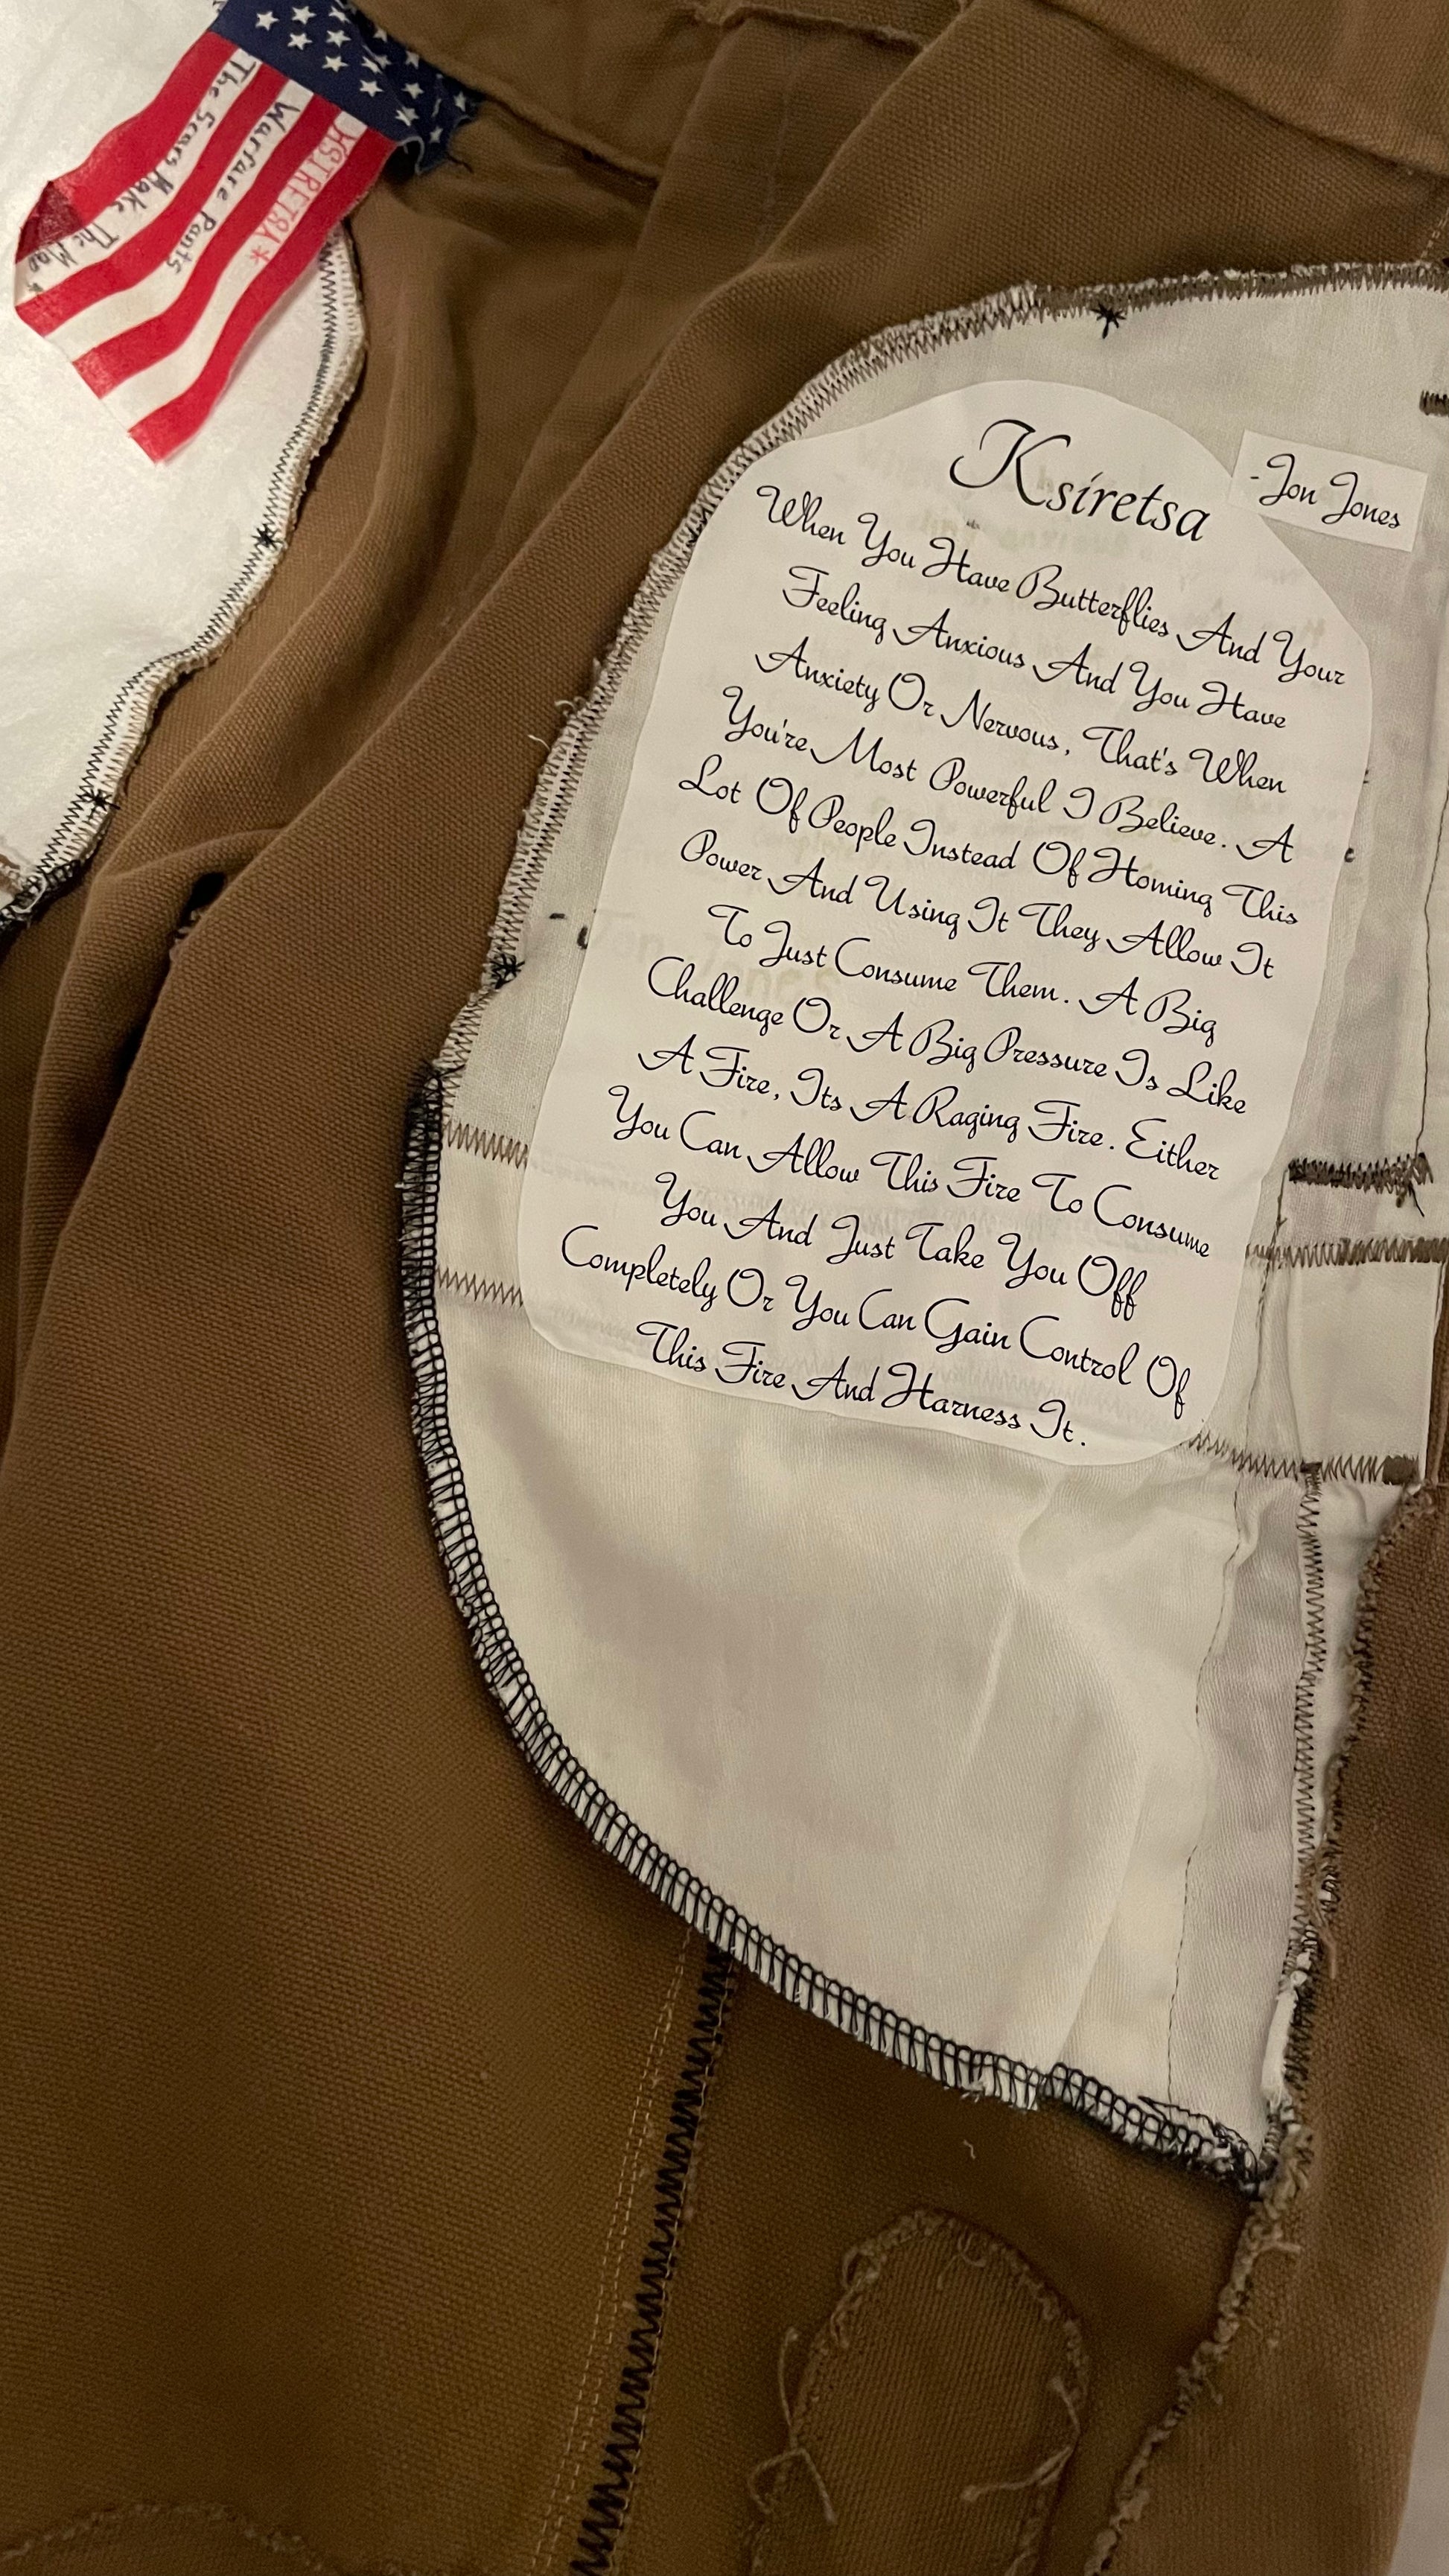 KSIRETSA*
Warfare Pants
The Scars Make The Man *
Ksiretsa
-Jon Jones
When You Have Butterflies And Your
Feeling Anxious And You Have
Anxiety Or Nervous, That's When
You're Most Powerful I Believe. A
Lot Of People Instead Of Homing This
Power And Using It They Allow It
To Just Consume Them. A Big
Challenge Or A Big Pressure Is Like
A Fire, Its A Raging Fire. Either
You Can Allow This Fire To Consume
You And Just Take You Off
Completely Or You Can Gain Control Of
This Fire And Harness It.